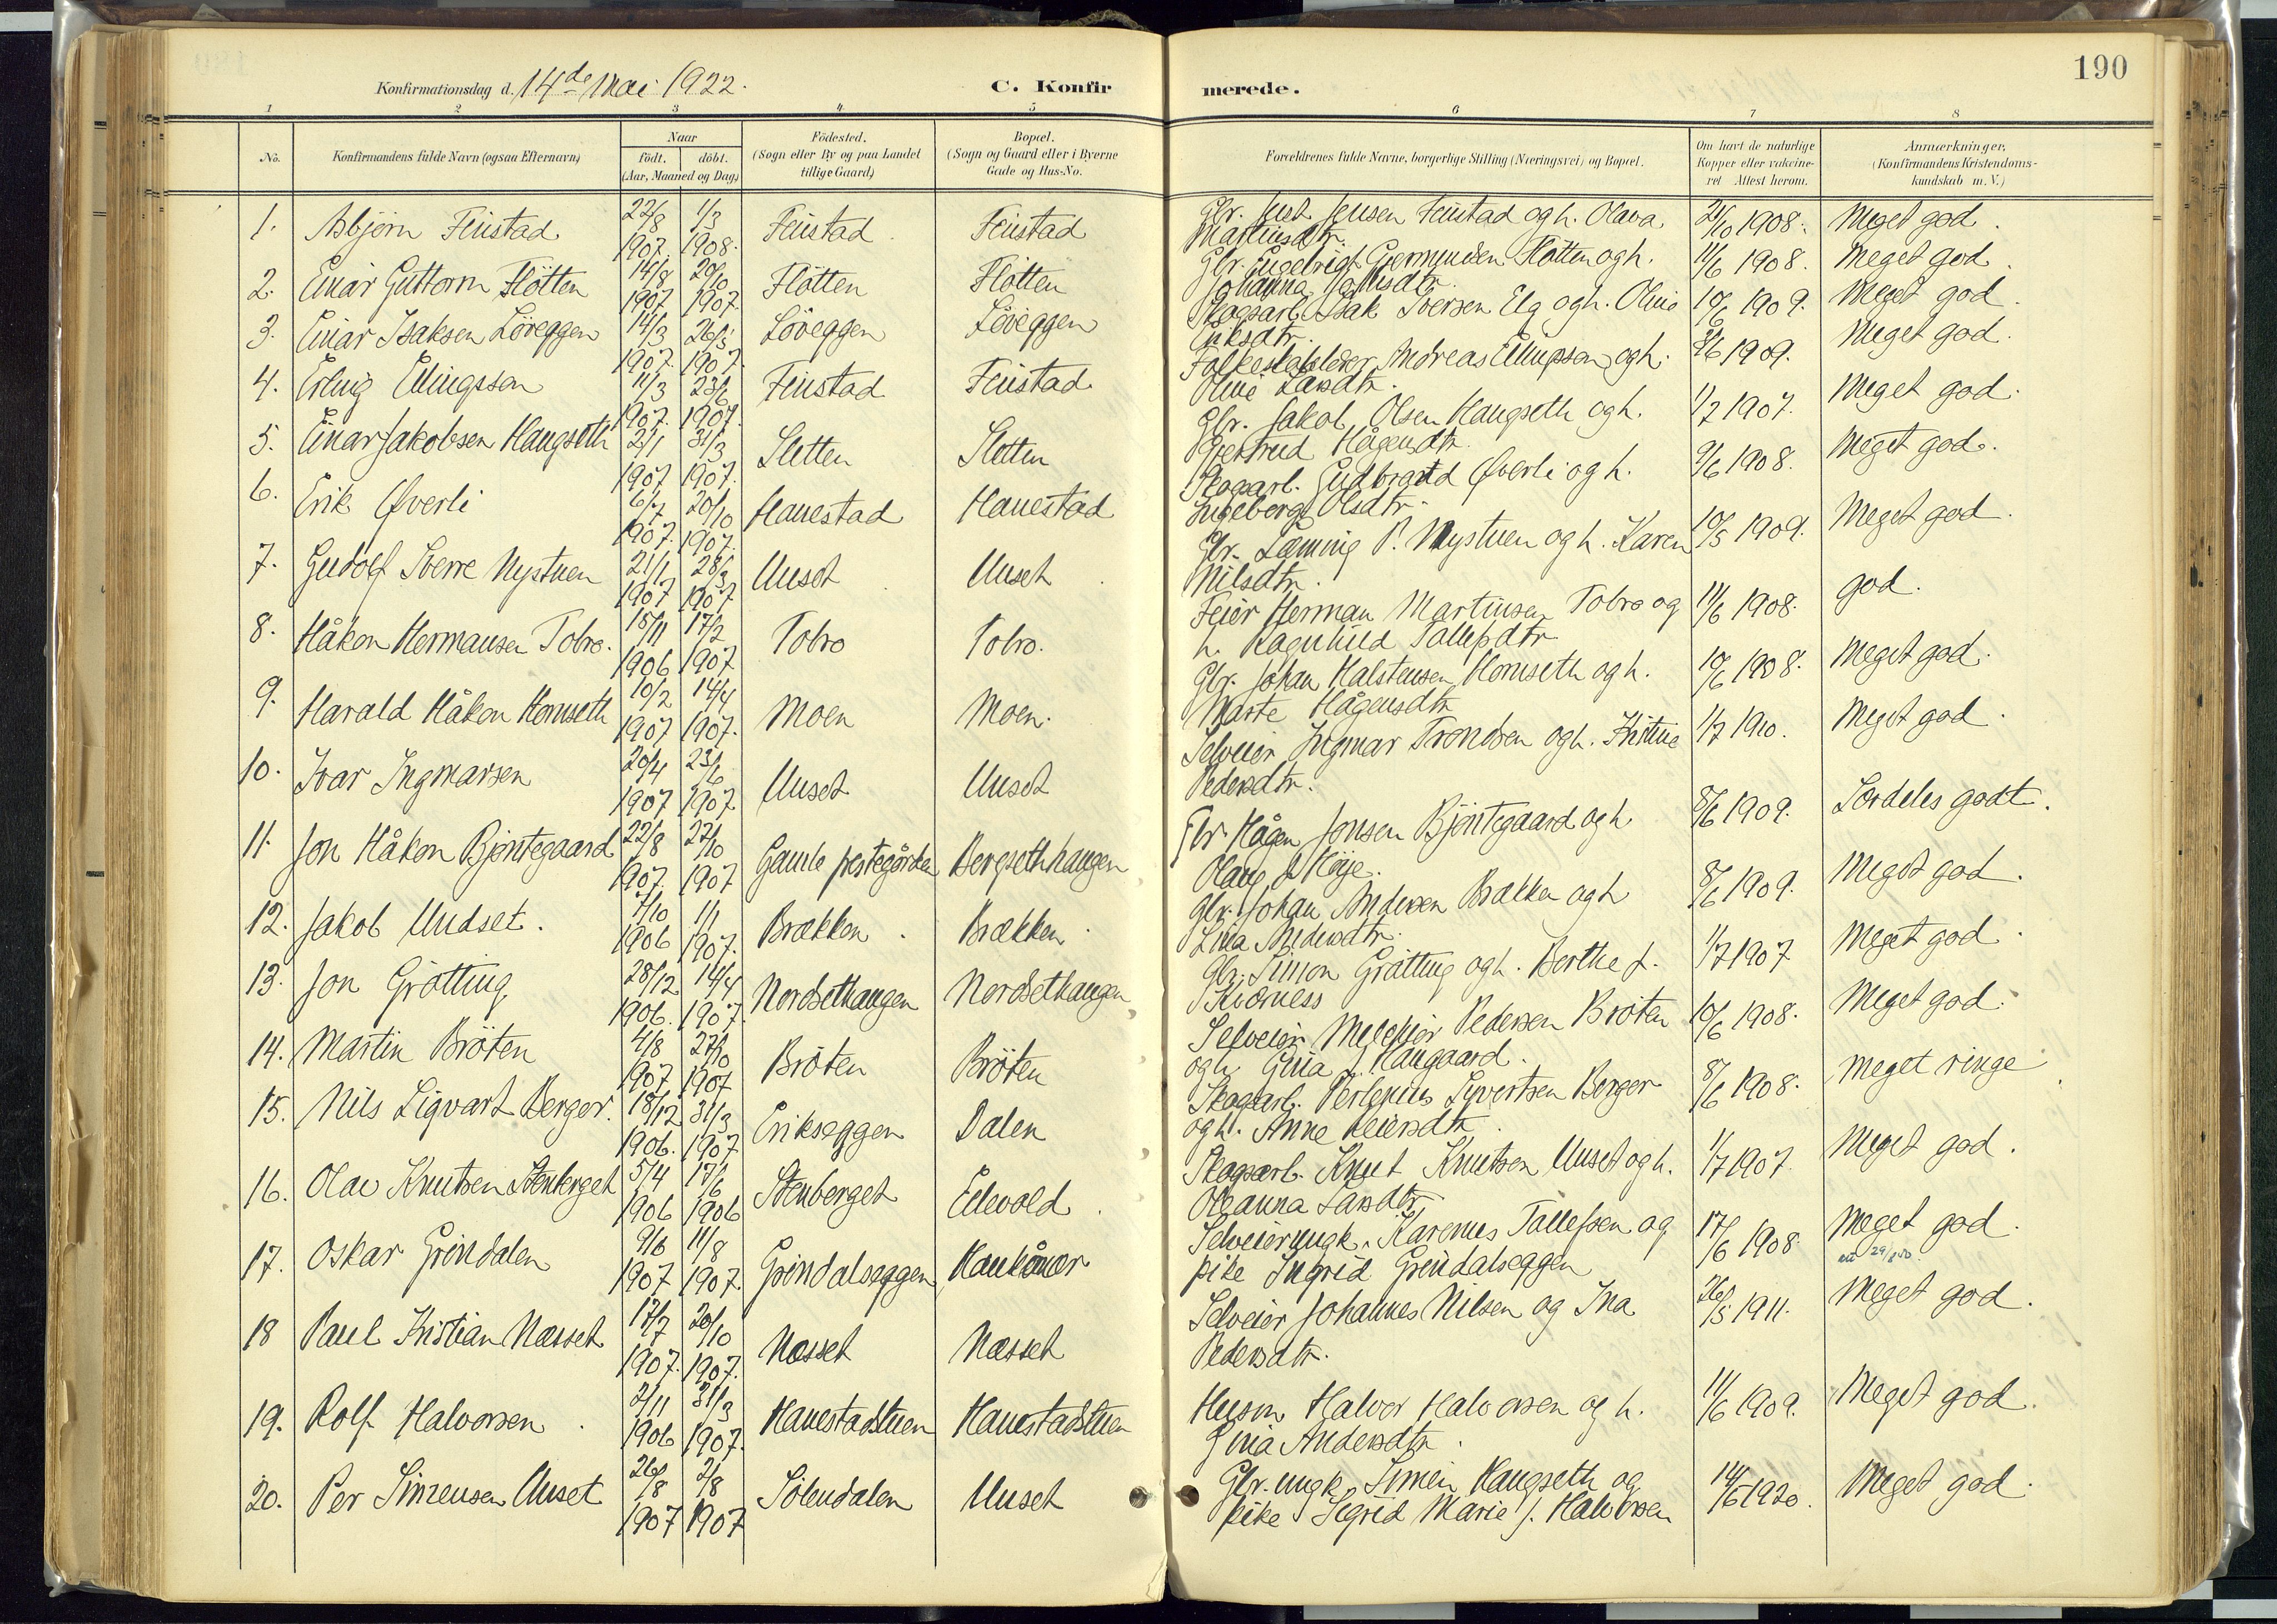 190
Konfirmationsdag d. 14de Mai 1922. C. Konfirmerede.
1 2 3 4 5 6 7 8
No. Konfirmandens fulde Navn (ogsaa Efternavn) Naar födt. döbt. (Aar, Maaned og Dag) Födested. (Sogn eller By og paa Landet tillige Gaard) Bopæl. (Sogn og Gaard eller i Byerne Gade og Hus-No. Forældrenes fulde Navne, borgerlige Stilling (Næringsvei) og Bopæl. Om havt de naturlige Kopper eller vakcineret Attest herom. Anmærkninger. (Konfirmandens Kristendomskundskab m. V.)
1. Asbjörn Finstad 22/8 1907. 1/3 1908. Finstad Finstad Gbr. Just Jensen Finstad og h. Olava Martinsdtr. 21/10 1908. Meget god.
2. Einar Guttorm Flötten 14/8 1907 20/10 1907. Flötten Flötten Gbr. Engebrigt Gjermundsen Flötten og h. Johanna 11/6 1908. Meget god.
3. Einar Isaksen Löveggen 14/3 1907. 26/5 1907. Löveggen Löveggen Skogsarb. Isak Iversen Elg og h. Oline Eriksdtr. 10/6 1909. Meget god.
4. Erling Ellingsson 11/3 1907. 23/6 1907. Finstad Finstad Andreas Ellingsson og h. Oline Larsdtr. 8/6 1909. Meget god.
5. Einar Jakobsen Haugseth 2/1 1907 31/3 1907. Sletten Sletten Gbr. Jakob Olsen Haugseth og h. Gjertrud Hågensdtr. 1/7 1907. Meget god.
6. Erik Øverli 6/7 1907. 20/10 1907. Hanestad Hanestad Skogsarb. Gudbrand Øverli og h. Ingeborg Olsdtr. 9/6 1908. Meget god.
7. Gudolf Sverre Nystuen 21/1 1907 28/3 1907 Unset Unset Gbr. Læming P. Nystuen og h. Karen Nilsdtr. 10/5 1909. Meget god.
8. Håkon Hermansen Tobro. 18/11 1906 17/2 1907. Tobro Tobro. Feier Herman Martinsen Tobro og h. Ragnhild Tollefsdtr. 11/6 1908. god.
9. Harald Håkon Hornseth 10/2 1907 14/4 1907. Moen Moen. Gbr. Johan Halstensen Hornseth og h. Marte Hågensdtr 10/6 1908. Meget god.
10. Ivar Ingmarsen 20/4 1907 23/6 1907. Unset Unset Selveier Ingmar Trondsen og h. Kristine Pedersdtr. 1/7 1910. Meget god.
11. Jon Håkon Bjöntegaard 22/8 1907. 27/10 1907 Gamle prestegården Bergsethhaugen Gbr. Hågen Jonsen Bjöntegaard og h Olaug f. Höye. 8/6 1909. Særdeles godt.
12. Jakob Undset. 7/10 1906 1/1 1907. Brækken. Brækken. Gbr. Johan Andersen Brækken og h Lina Andersdtr. 8/6 1909. Meget god.
13. Jon Grötting 28/12 1906. 14/4 1907. Nordsethaugen Nordsethaugen Gbr. Simon Grötting og h. Berthe f. Kvdrness 1/7 1907 Meget god.
14. Martin Bröten 4/8 1907. 27/10 1907 Bröten Bröten Selveier Melchior Pedersen Bröten og h. Gina f. Haugaard. 10/6 1908. Meget god.
15. Nils Sigvart Berger. 18/12 1906. 31/3 1907 Erikseggen Dalen Skogsarb. Perlenius Syvertsen Berger og h. Anne Reiersdtr. 8/6 1908. Meget ringe.
16. Olav Knutsen Stenberget 5/4 1906 17/6 1906 Stenberget Eidevold. Skogsarb. Knut Knutsen Unset og h. Oleanna Larsdtr. 1/7 1907. Meget god.
17. Oskar Grindalen 9/6 1907 11/8 1907. Grindalseggen Haukåner Selveierungk. Karenus Tollefsen og pike Ingrid Grindalseggen 17/6 1908. Meget god. 29/8 50
18 Paul Kristian Næsset 17/7 1907. 20/10 1907. Næsset Næsset Selveier Johannes Nilsen og Ina Pedersdtr. 26/5 1911. Meget god.
19. Rolf Halvorsen 2/11 1906 31/3 1907. Hanestadstuen Hanestadstuen Husm. Halvor Halvorsen og h. Gina Andersdtr. 11/6 1909. Meget god.
20. Per Simensen Unset 26/8 1907 2/8 1907 Sölendalen Unset Gbr. ungk. Simen Haugseth og pike Sigrid Marie f. Halvorsen 14/6 1920. Meget god.